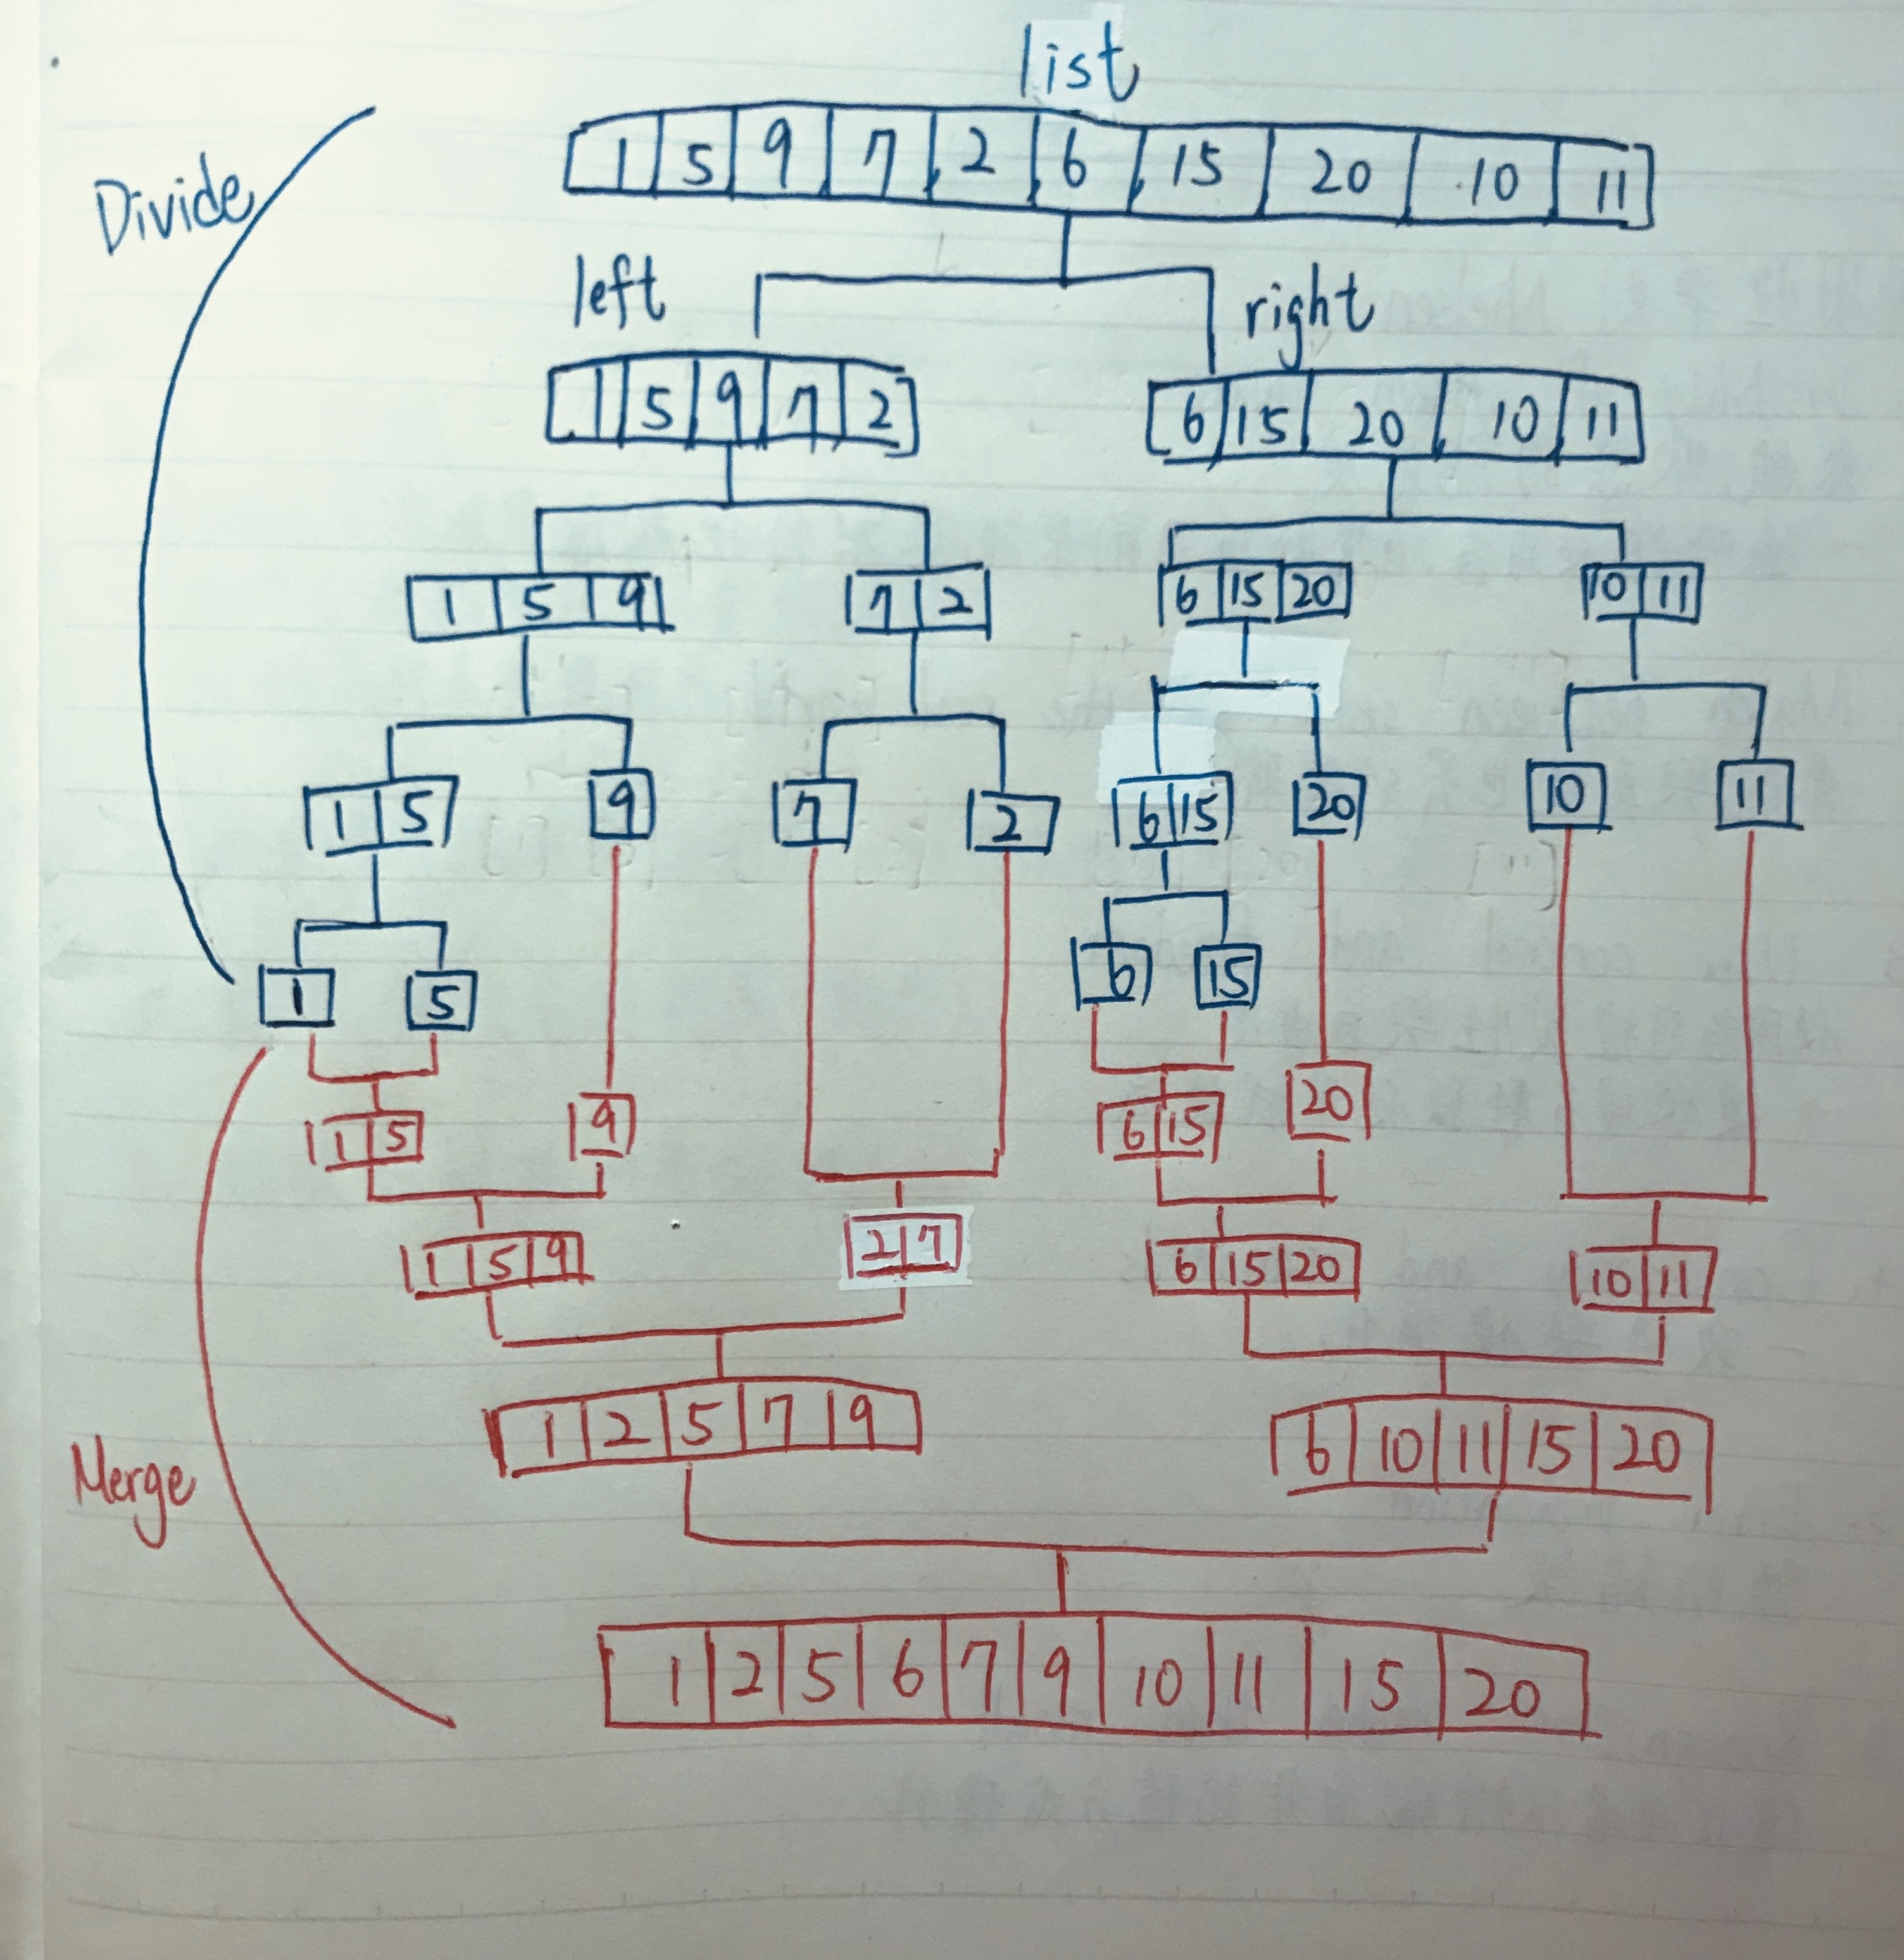 list
1 5 9 7 2 6 15 20 10 11
Divide
left right
1 5 9 7 2 6 15 20 10 11
1 5 9 7 2 6 15 20 10 11
1 5 9 7 2 6 15 20 10 11
1 5 6 15
1 5 9 6 15 20
1 5 9 2 7 6 15 20 10 11
1 2 5 7 9 6 10 11 15 20
Merge
1 2 5 6 7 9 10 11 15 20